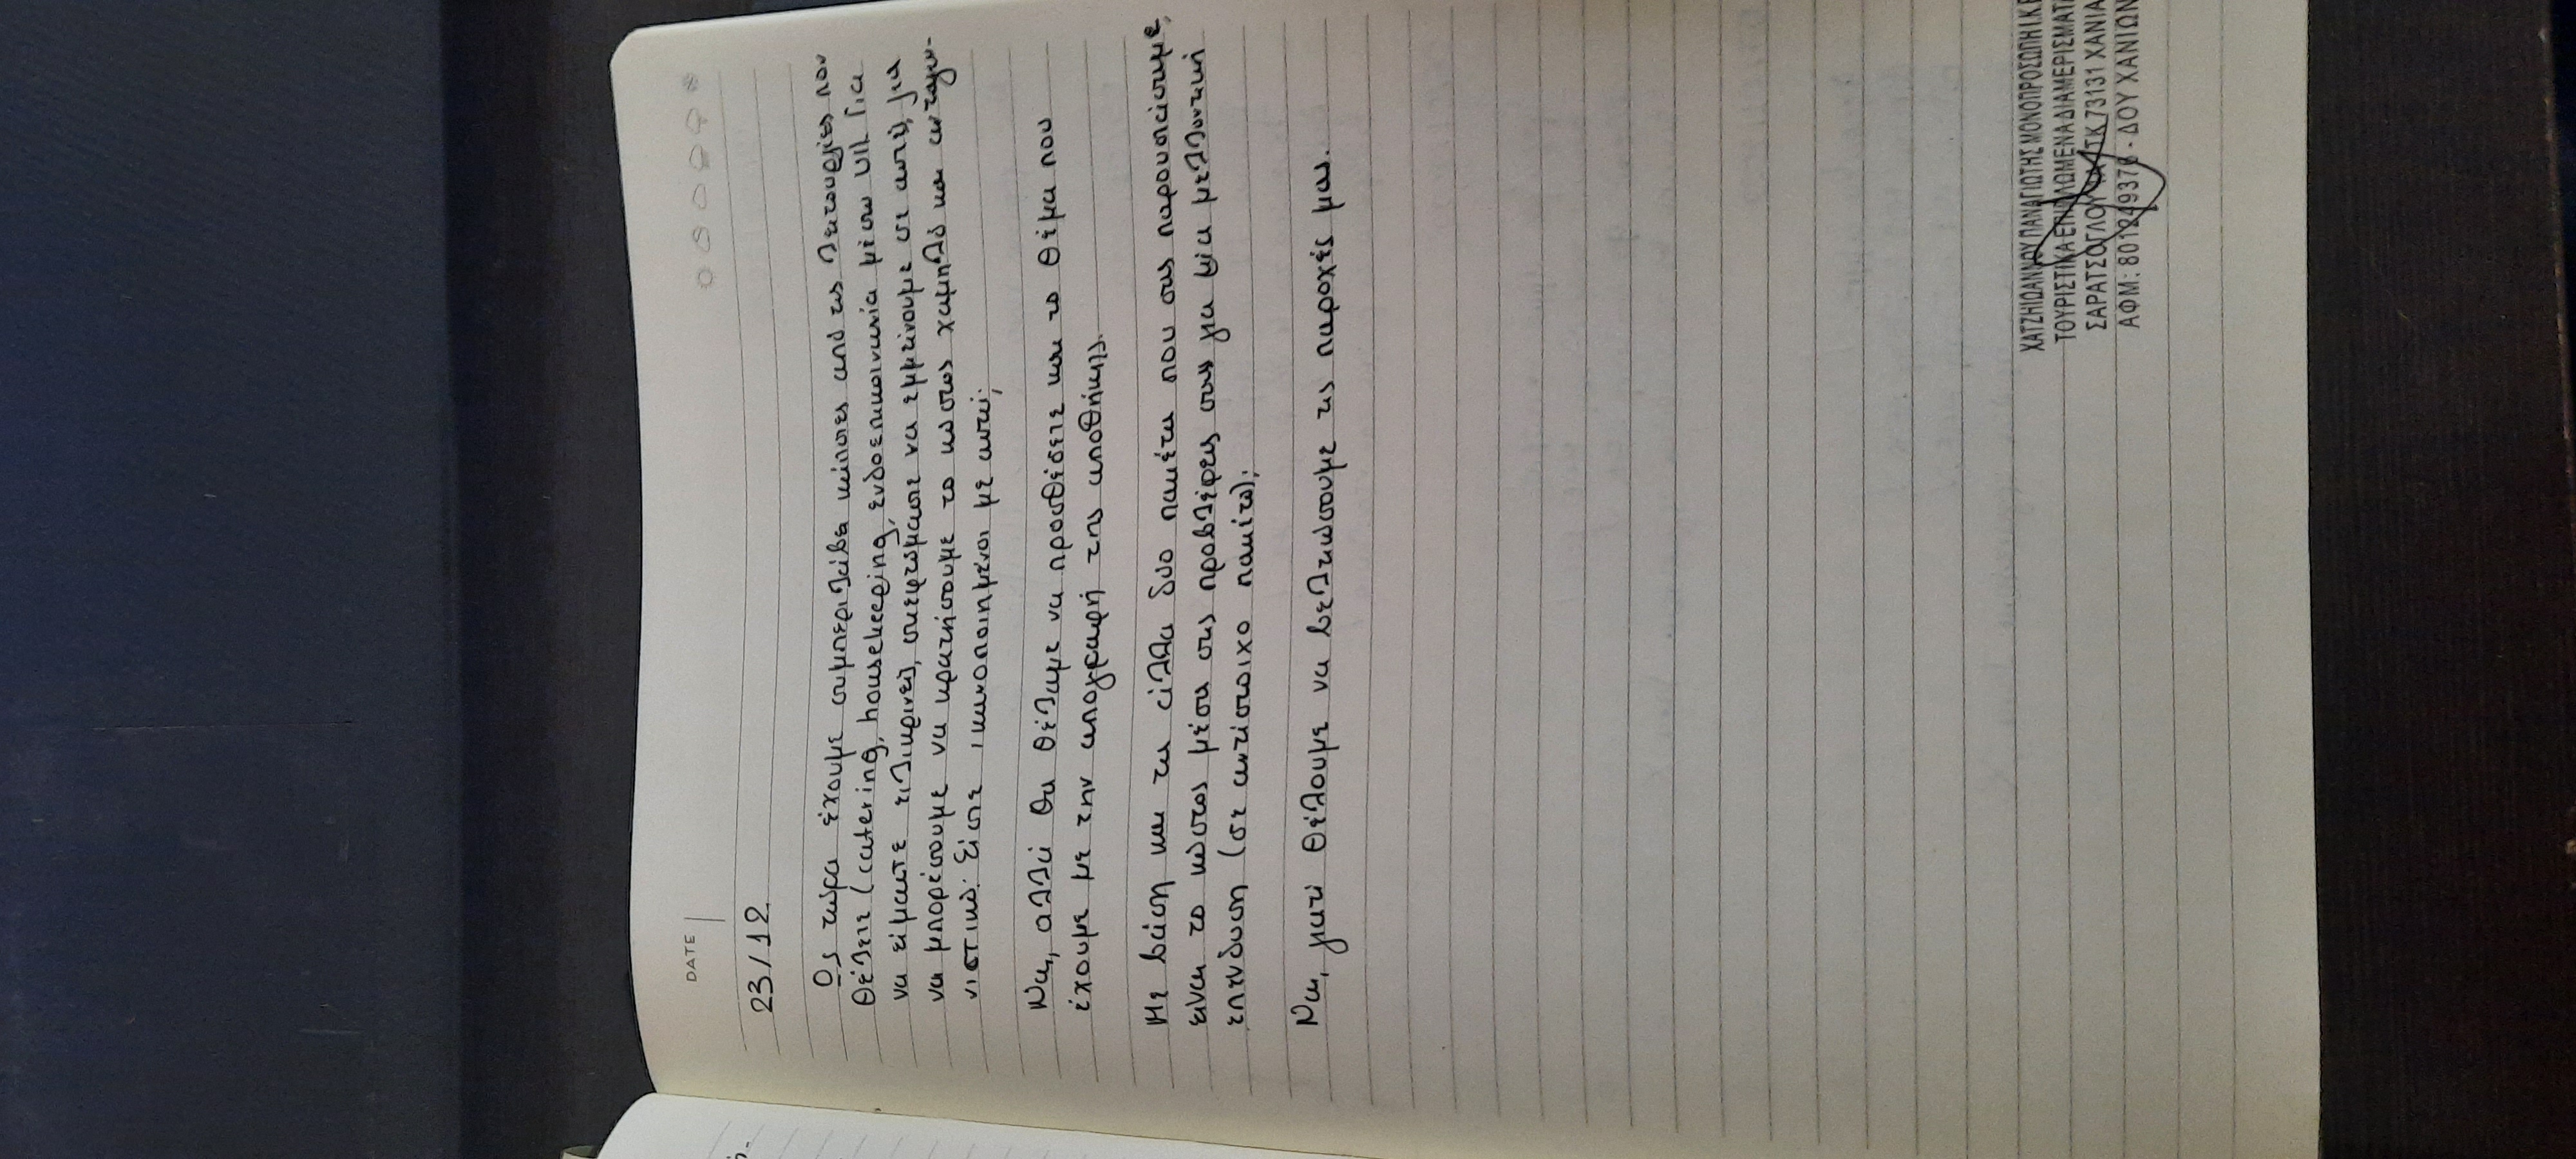 DATE
23/12
Ως τώρα έχουμε συμπεριλάβει κάποιες από τις λειτουργίες που
θέλετε (catering, housekeeping, ενδοεπικοινωνία μέσω Για
να είμαστε ειλικρινείς, σκεφτόμαστε να εμμείνουμε σε αυτές για
να μπορέσουμε να κρατήσουμε το κόστος χαμηλό και ανταγω-
νιστικό. Είστε ικανοποιημένοι με αυτό;
Ναι, αλλά θα θέλαμε να προσθέσετε και το θέμα που
έχουμε με την απογραφή της αποθήκης.
Με βάση και τα άλλα δύο πακέτα που σας παρουσιάσαμε,
είναι το κόστος μέσα στις προβλέψεις σας για μία μελλοντική
επένδυση (σε αντίστοιχο πακέτο);
Ναι, γιατί θέλουμε να βελτιώσουμε τις παροχές μας.
ΧΑΤΖΗΙΩΑΝΝΟΥ ΠΑΝΑΓΙΩΤΗΣ ΜΟΝΟΠΡΟΣΩΠΗ Ι.Κ.Ε
ΤΟΥΡΙΣΤΙΚΑ ΕΠΙΠΛΩΜΕΝΑ ΔΙΑΜΕΡΙΣΜΑΤΑ
ΣΑΡΑΤΣΟΓΛΟΥ ΤΚ 73131 ΧΑΝΙΑ
ΑΦΜ: - ΔΟΥ ΧΑΝΙΩΝ